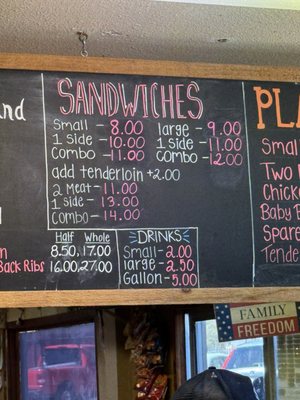 and
SANDWICHES
Small - 8.00 large - 9.00
1 side - 10.00 1 side - 11.00
Combo - 11.00 combo - 12.00
add tenderloin +2.00
2 Meat - 11.00
1 side - 13.00
combo - 14.00
Half Whole
8.50, 17.00
Back Ribs 16.00, 27.00
DRINKS
Small - 2.00
large - 2.50
Gallon - 5.00
PLA
Small
Two
Chick
Baby
Spare
Tende
FAMILY
FREEDOM